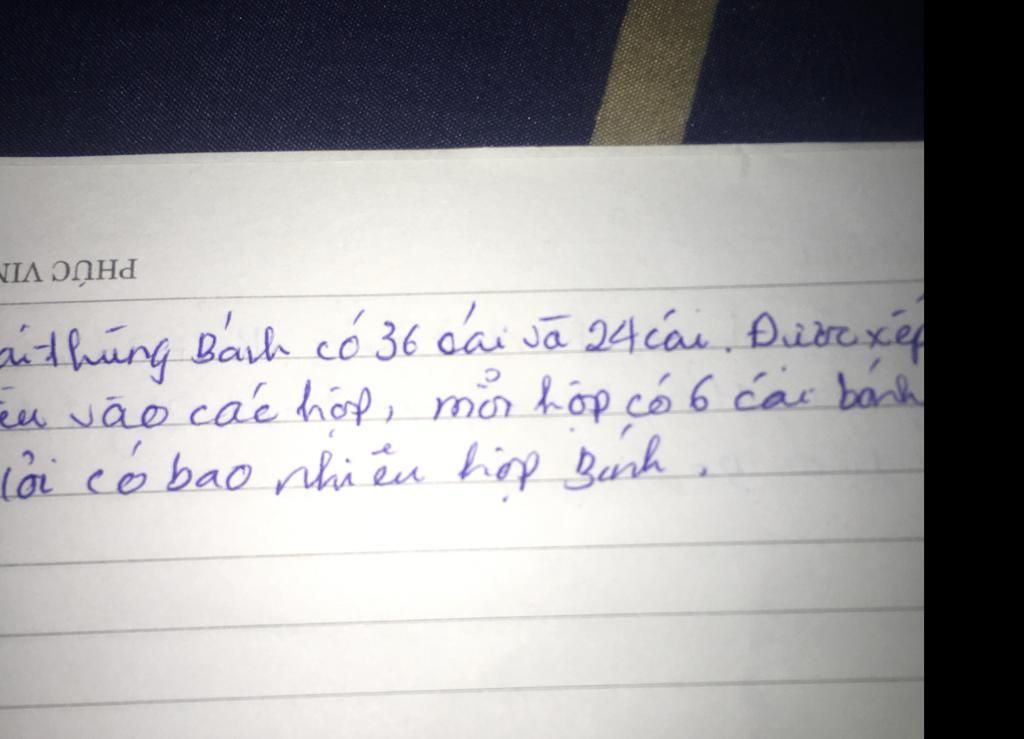 PHÚC VIN
ai thùng Bánh có 36 cái và 24 cái. Được xếp
ều vào các hộp, mỗi hộp có 6 cái bánh
lỏi có bao nhiêu hộp Bánh.